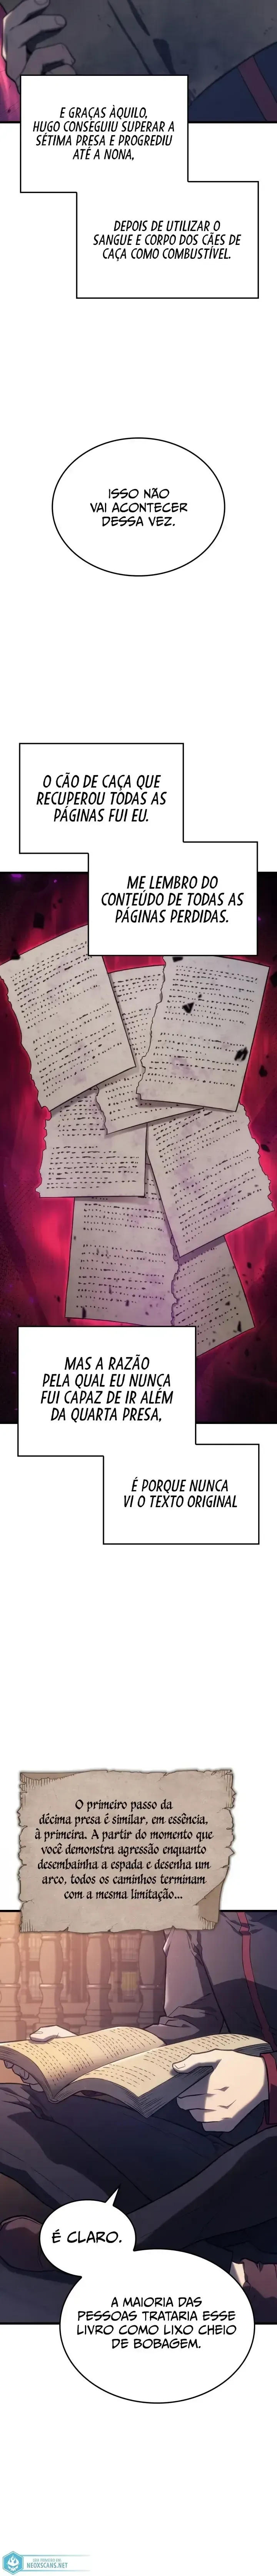 E GRAÇAS ÀQUILO,
HUGO CONSEGUIU SUPERAR A
SÉTIMA PRESA E PROGREDIU
ATÉ A NONA,
DEPOIS DE UTILIZAR O
SANGUE E CORPO DOS CÃES DE
CAÇA COMO COMBUSTÍVEL.
ISSO NÃO
VAI ACONTECER
DESSA VEZ.
O CÃO DE CAÇA QUE
RECUPEROU TODAS AS
PÁGINAS FUI EU.
ME LEMBRO DO
CONTEÚDO DE TODAS AS
PÁGINAS PERDIDAS.
MAS A RAZÃO
PELA QUAL EU NUNCA
FUI CAPAZ DE IR ALÉM
DA QUARTA PRESA,
É PORQUE NUNCA
VI O TEXTO ORIGINAL
O primeiro passo da
décima presa é similar, em essência,
à primeira. A partir do momento que
você demonstra agressão enquanto
desembainha a espada e desenha um
arco, todos os caminhos terminam
com a mesma limitação...
É CLARO.
A MAIORIA DAS
PESSOAS TRATARIA ESSE
LIVRO COMO LIXO CHEIO
DE BOBAGEM.
NEOXSCANS.NET